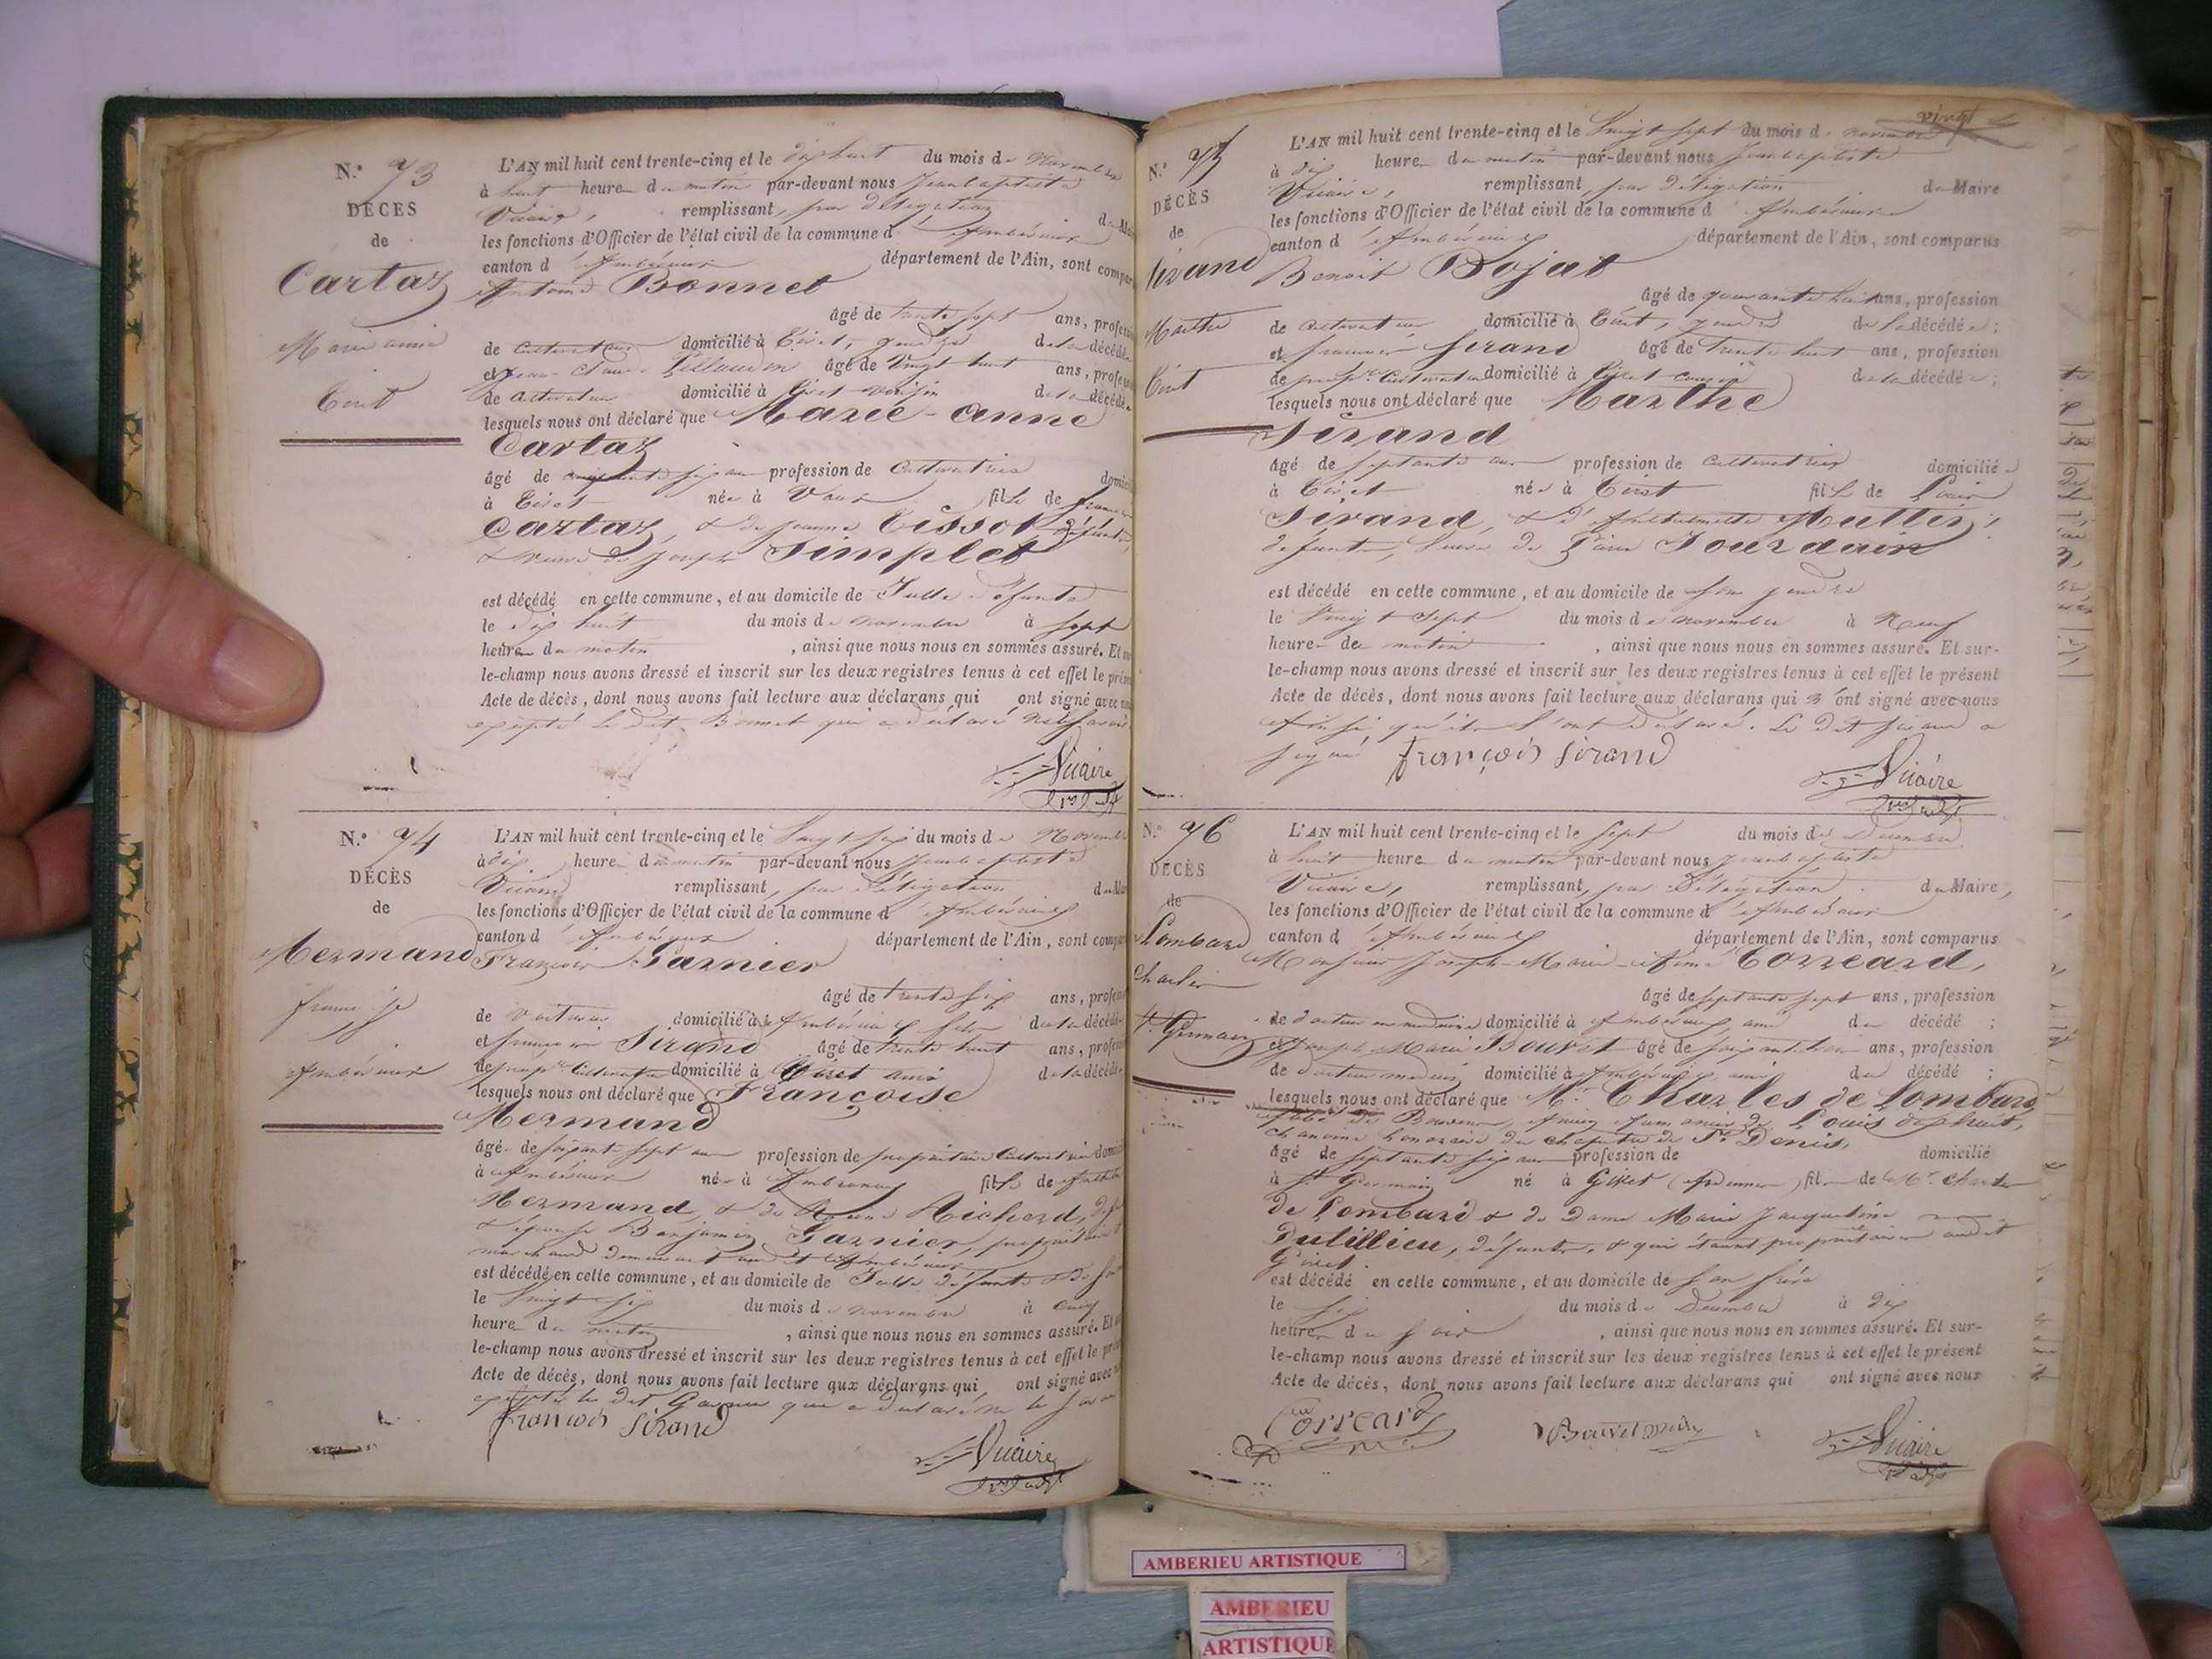 N.° 73
DÉCÈS
de
Cartaz
Marie anne
Tiret
L'AN mil huit cent trente-cinq et le dix huit du mois de Novembre
à huit heures du matin par-devant nous Jean baptiste
Vicaire, remplissant, par délégation du Mai
les fonctions d'Officier de l'état civil de la commune d'Ambérieux
canton d'Ambérieux département de l'Ain, sont compar
Antoine Bonnet
âgé de trente sept ans, profes
de Cultivateur domicilié à Tiret, gendre de la décédée
et Jean Claude âgé de vingt huit ans, profes
de Cultivateur domicilié à Tiret voisin de la décédée
lesquels nous ont déclaré que Marie-anne
Cartaz
âgé de cinquante six ans profession de Cultivatrice domici
à Tiret née à Vaux fille de
Cartaz, & de Jeanne Tissot, défunts,
& veuve de Joseph Simplet
est décédé en cette commune, et au domicile de Sulle défunte
le dix huit du mois de novembre à sept
heures du matin, ainsi que nous nous en sommes assuré. Et
le-champ nous avons dressé et inscrit sur les deux registres tenus à cet effet le prése
Acte de décès, dont nous avons fait lecture aux déclarans qui ont signé avec
excepté le dit Bonnet qui a déclaré ne le savoir
Vicaire
N.° 74
DÉCÈS
de
Mermand
françoise
Ambérieux
L'AN mil huit cent trente-cinq et le Vingt six du mois de Novembre
à dix heures du matin par-devant nous Jean baptiste
Vicaire remplissant, par délégation du Mai
les fonctions d'Officier de l'état civil de la commune d'Ambérieux
canton d'Ambérieux département de l'Ain, sont compar
François Garnier
âgé de trente six ans, profes
de Voiturier domicilié à Ambérieux fils de la décédée
et françois Sirand âgé de trente huit ans, profes
de prop.re Cultivateur domicilié à Tiret ami de la décédée
lesquels nous ont déclaré que Françoise
Mermand
âgé de soixante sept ans profession de propriétaire Cultivatrice domici
à Ambérieux née à Ambronay fille de
Mermand, & de Richerd,
& épouse Benjamin Garnier, propriétaire
marchand demeurant au dit Ambérieux
est décédé en cette commune, et au domicile de Sulle défunte
le Vingt six du mois de novembre à
heures du matin, ainsi que nous nous en sommes assuré. Et
le-champ nous avons dressé et inscrit sur les deux registres tenus à cet effet le prés
Acte de décès, dont nous avons fait lecture aux déclarans qui ont signé avec
excepté le dit Garnier qui a déclaré ne le savoir
François Sirand
Vicaire
vingt
N.° 75
DÉCÈS
de
Sirand
Marthe
Tiret
L'AN mil huit cent trente-cinq et le Vingt sept du mois de novembre
à dix heures du matin par-devant nous Jean baptiste
Vicaire, remplissant, par délégation du Maire
les fonctions d'Officier de l'état civil de la commune d'Ambérieux
canton d'Ambérieux département de l'Ain, sont comparus
Benoit Dojat
âgé de quarante huit ans, profession
de Cultivateur domicilié à Tiret, gendre de la décédée;
et françois Sirand âgé de trente huit ans, profession
de prop.re Cultivateur domicilié à Tiret cousin de la décédée;
lesquels nous ont déclaré que Marthe
Sirand
âgé de septante ans profession de Cultivatrice domicilié
à Tiret née à Tiret fille de Louis
Sirand, & d'Anthelmette
défunts, Veuve de Pierre Jourdain
est décédé en cette commune, et au domicile de son gendre
le Vingt sept du mois de novembre à Neuf
heures de matin, ainsi que nous nous en sommes assuré. Et sur-
le-champ nous avons dressé et inscrit sur les deux registres tenus à cet effet le présent
Acte de décès, dont nous avons fait lecture aux déclarans qui ont signé avec nous
Ainsi qu'ils l'ont déclaré. Le dit Sirand a
signé François Sirand
Vicaire
N.° 76
DÉCÈS
de
Lombard
Charles
S.t Germain
L'AN mil huit cent trente-cinq et le Sept du mois de Décembre
à huit heures du matin par-devant nous Jean baptiste
Vicaire, remplissant, par délégation du Maire,
les fonctions d'Officier de l'état civil de la commune d'Ambérieux
canton d'Ambérieux département de l'Ain, sont comparus
Monsieur Joseph-Marie-Aimé Corréard,
âgé de septante sept ans, profession
de docteur en médecine domicilié à Ambérieux, ami du décédé;
et Joseph Marie Bouvet âgé de ans, profession
de docteur médecin domicilié à Ambérieux, ami du décédé;
lesquels nous ont déclaré que M.r Charles de Lombard
Abbé de ancien Aumonier de Louis dix huit,
Chanoine honoraire du Chapitre de S.t Denis,
âgé de septante six ans profession de domicilié
à S.t Germain né à Givet (Ardennes) fils de M.r Charles
de Lombard & de Dame Marie Jacqueline
Dutillieu, défunts, & qui étaient propriétaires audit
Givet.
est décédé en cette commune, et au domicile de son frère
le Six du mois de Décembre à dix
heures du soir, ainsi que nous nous en sommes assuré. Et sur-
le-champ nous avons dressé et inscrit sur les deux registres tenus à cet effet le présent
Acte de décès, dont nous avons fait lecture aux déclarans qui ont signé avec nous
Corréard
Bouvet
Vicaire
AMBERIEU ARTISTIQUE
AMBERIEU
ARTISTIQUE